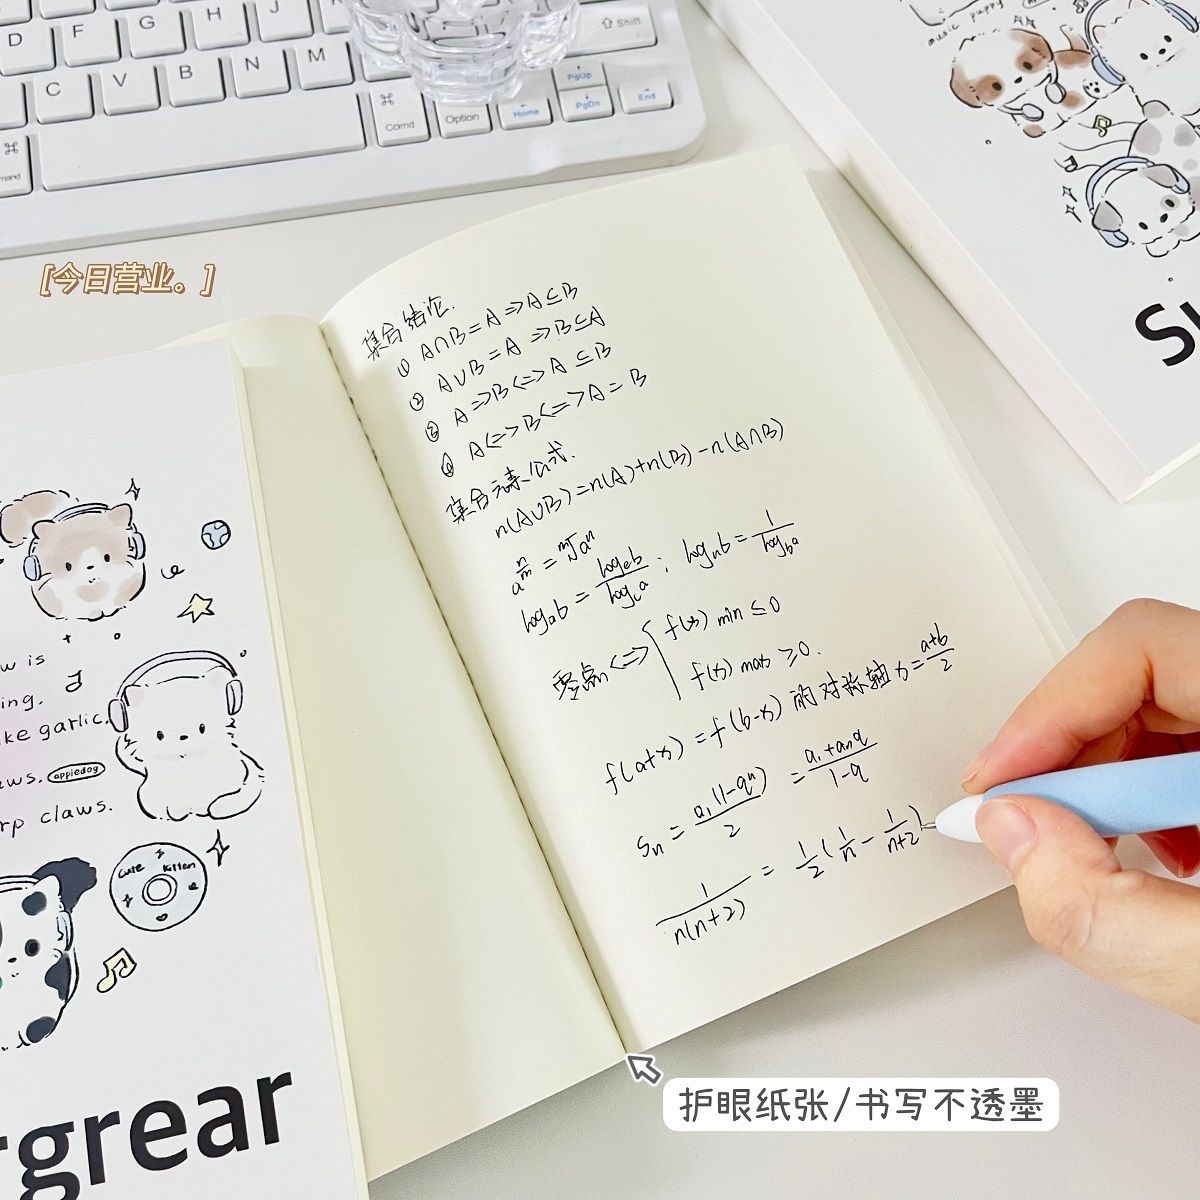 D F G H
C V B N M
⇧ Shift
⌘
Comd
Option
Home
PgUp
PgDn
End
⌘
mand
music puppy
Su
[今日营业。]
集合结论.
① A∩B=A⇒A⊆B
② A∪B=A ⇒B⊆A
③ A⇒B<=>A⊆B
④ A<=>B<=>A=B
集合元素公式.
n(A∪B)=n(A)+n(B)-n(A∩B)
a^(n/m) = ᵐ√aⁿ
log_a b = log_c b / log_c a ; log_a b = 1 / log_b a
零点<=> { f(x) min ≤0
f(x) max ≥0.
f(a+x)=f(b-x)的对称轴x=(a+b)/2
Sn = a₁(1-qⁿ)/2 = (a₁+anq)/(1-q)
1/(n(n+2)) = 1/2(1/n - 1/(n+2))
w is
ing.
ke garlic.
aws. appledog
rp claws.
cute kitten
rgrear
护眼纸张/书写不透墨